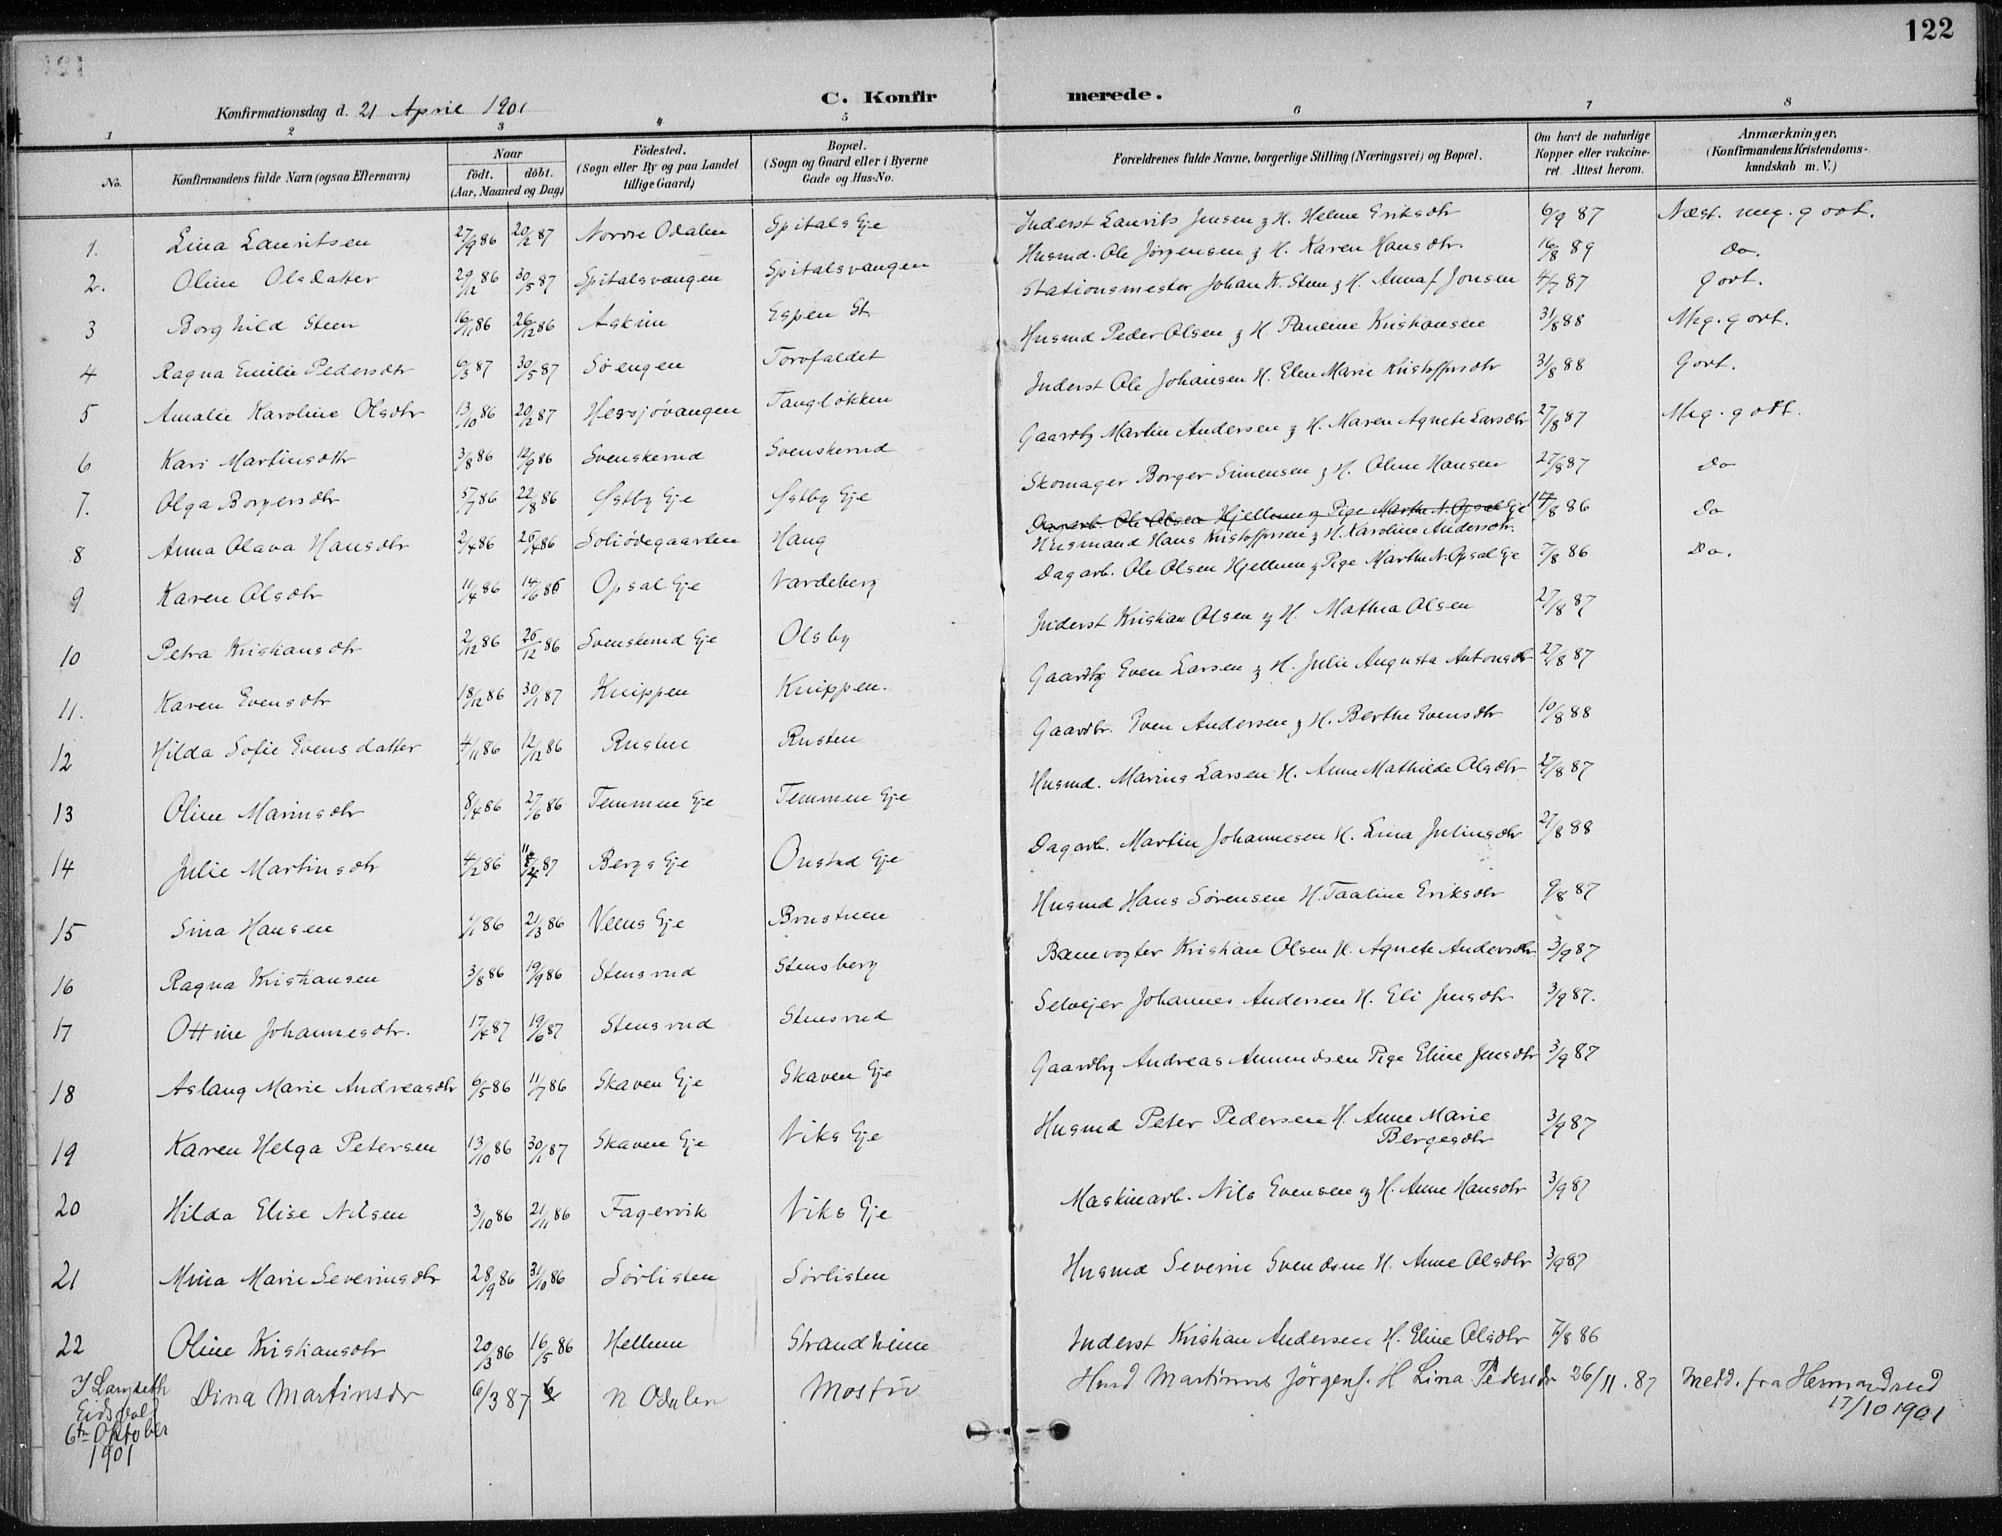 122
Konfirmationsdag d. 21 April 1901
C. Konfirmerede.
1 2 3 4 5 6 7 8
No. Konfirmandens fulde Navn (ogsaa Efternavn) Naar født. døbt. (Aar, Maaned og Dag) Fødested. (Sogn eller By og paa Landet tillige Gaard) Bopæl. (Sogn og Gaard eller i Byerne Gade og Hus-No. Forældrenes fulde Navne, borgerlige Stilling (Næringsvei) og Bopæl. Om havt de naturlige Kopper eller vaccineret. Attest herom. Anmærkninger, (Konfirmandens Kristendomskundskab m. V.)
1. Lina Lauritsen 27/9 86 20/2 87 Nordre Odalen Spitals Eje Inderst Laurits Jensen og H. Helene Eriksdtr 6/9 87 Næst. meg. godt.
2. Oline Olsdatter 29/12 86 30/5 87 Spitalsvangen Spitalsvangen Husmd. Ole Jørgensen og H. Karen Hansdtr. 16/8 89 do.
3 Borghild Steen 16/11 86 26/12 86 Askim Espen St. Stationsmester Johan K. Steen og H. Anna f Jonsen 4/7 87 godt.
4 Ragna Emilie Pedersdtr 6/3 87 30/5 87 Søengen Torvfaldet Husmd Peder Olsen og H Pauline Kristiansen 31/8 88 Meg. godt.
5 Amalie Karoline Olsdtr 13/10 86 20/2 87 Hersjøvangen Tangløkken Inderst Ole Johansen H. Elen Marie Kristoffersdtr 31/8 88 Godt.
6 Kari Martinsdtr 3/8 86 12/9 86 Svenskerud Svenskerud Gaardbr Martin Andersen og H. Maren Agnete Larsdtr 27/8 87 Meg. godt.
7. Olga Borgersdtr 5/7 86 22/8 86 Østby Eje Østby Eje Skomager Borger Simensen og H. Oline Hansen 27/8 87 do
8 Anna Olava Hansdtr 2/4 86 26/4 86 Soliødegaarden Haug Dagarb. Ole Olsen Hjellum og Pige Marthe N. Opsal Eje 14/8 86 do
Husmand Hans Kristoffersen og H. Karoline Andersdtr.
9 Karen Olsdtr 11/4 86 14/6 86 Opsal Eje Vardeberg Dagarb. Ole Olsen Hjellum og Pige Marthe N. Opsal Eje 7/8 86 Do.
10 Petra Kristiansdtr 2/12 86 26/12 86 Svenskerud Eje Olsby Inderst Kristian Olsen og H. Mathea Olsen 27/8 87
11. Karen Evensdtr 18/12 86 30/1 87 Knippen Knippen. Gaardbr Even Larsen og H. Julie Augusta Antonsdtr 27/8 87
12 Hilda Sofie Evensdatter 4/11 86 12/12 86 Rusten Rusten Gaardbr. Even Andersen og H. Berthe Evensdtr 10/8 88
13 Oline Marinsdtr 8/4 86 27/6 86 Temmen Eje Temmen Eje Husmd. Marius Larsen H. Anne Mathilde Olsdtr 27/8 87
14 Julie Martinsdtr 4/2 86 11/4 87 Bergs Eje Onstad Eje Dagarb. Martin Johannesen H. Lina Juliusdtr 27/8 88
15 Sina Hansen 1/1 86 21/3 86 Veens Eje Brustuen Husmd Hans Sørensen H. Taaline Eriksdtr 9/8 87
16 Ragna Kristiansen 3/8 86 19/9 86 Stensrud Stensberg Banevogter Kristian Olsen H. Agnete Andersdtr 3/9 87
17 Ottine Johannesdtr. 17/4 87 19/6 87 Stensrud Stensrud Selvejer Johannes Andersen H. Eli Jensdtr 3/9 87.
18 Aslaug Marie Andreasdtr 6/5 86 11/7 86 Skaven Eje Skaven Eje Gaardbr Andreas Amundsen Pige Eline Jensdtr 3/9 87
19 Karen Helga Petersen 13/10 86 30/1 87 Skaven Eje Viks Eje Husmd Peter Pedersen H. Anne Marie Bergesdtr 3/9 87
20 Hilda Elise Nilsen 3/10 86 21/11 86 Fagervik Viks Eje Maskinarb. Nils Evensen og H. Anne Hansdtr 3/9 87
21 Mina Marie Severinsdtr 28/9 86 31/10 86 Sørlisten Sørlisten Husmd Severin Svendsen H. Anne Olsdtr 3/9 87
22 Oline Kristiansdtr 20/3 86 16/5 86 Hellum Strandheim Inderst Kristian Andersen H. Eline Olsdtr 7/8 86
I Langseth Eidsvold 6te Oktober 1901 Dina Martinsdr 6/3 87 N Odalen Mosfir Husd Martinus Jørgens. H Lina Pedersdr 26/11. 87 Medd. fra Hernandrud 17/10 1901